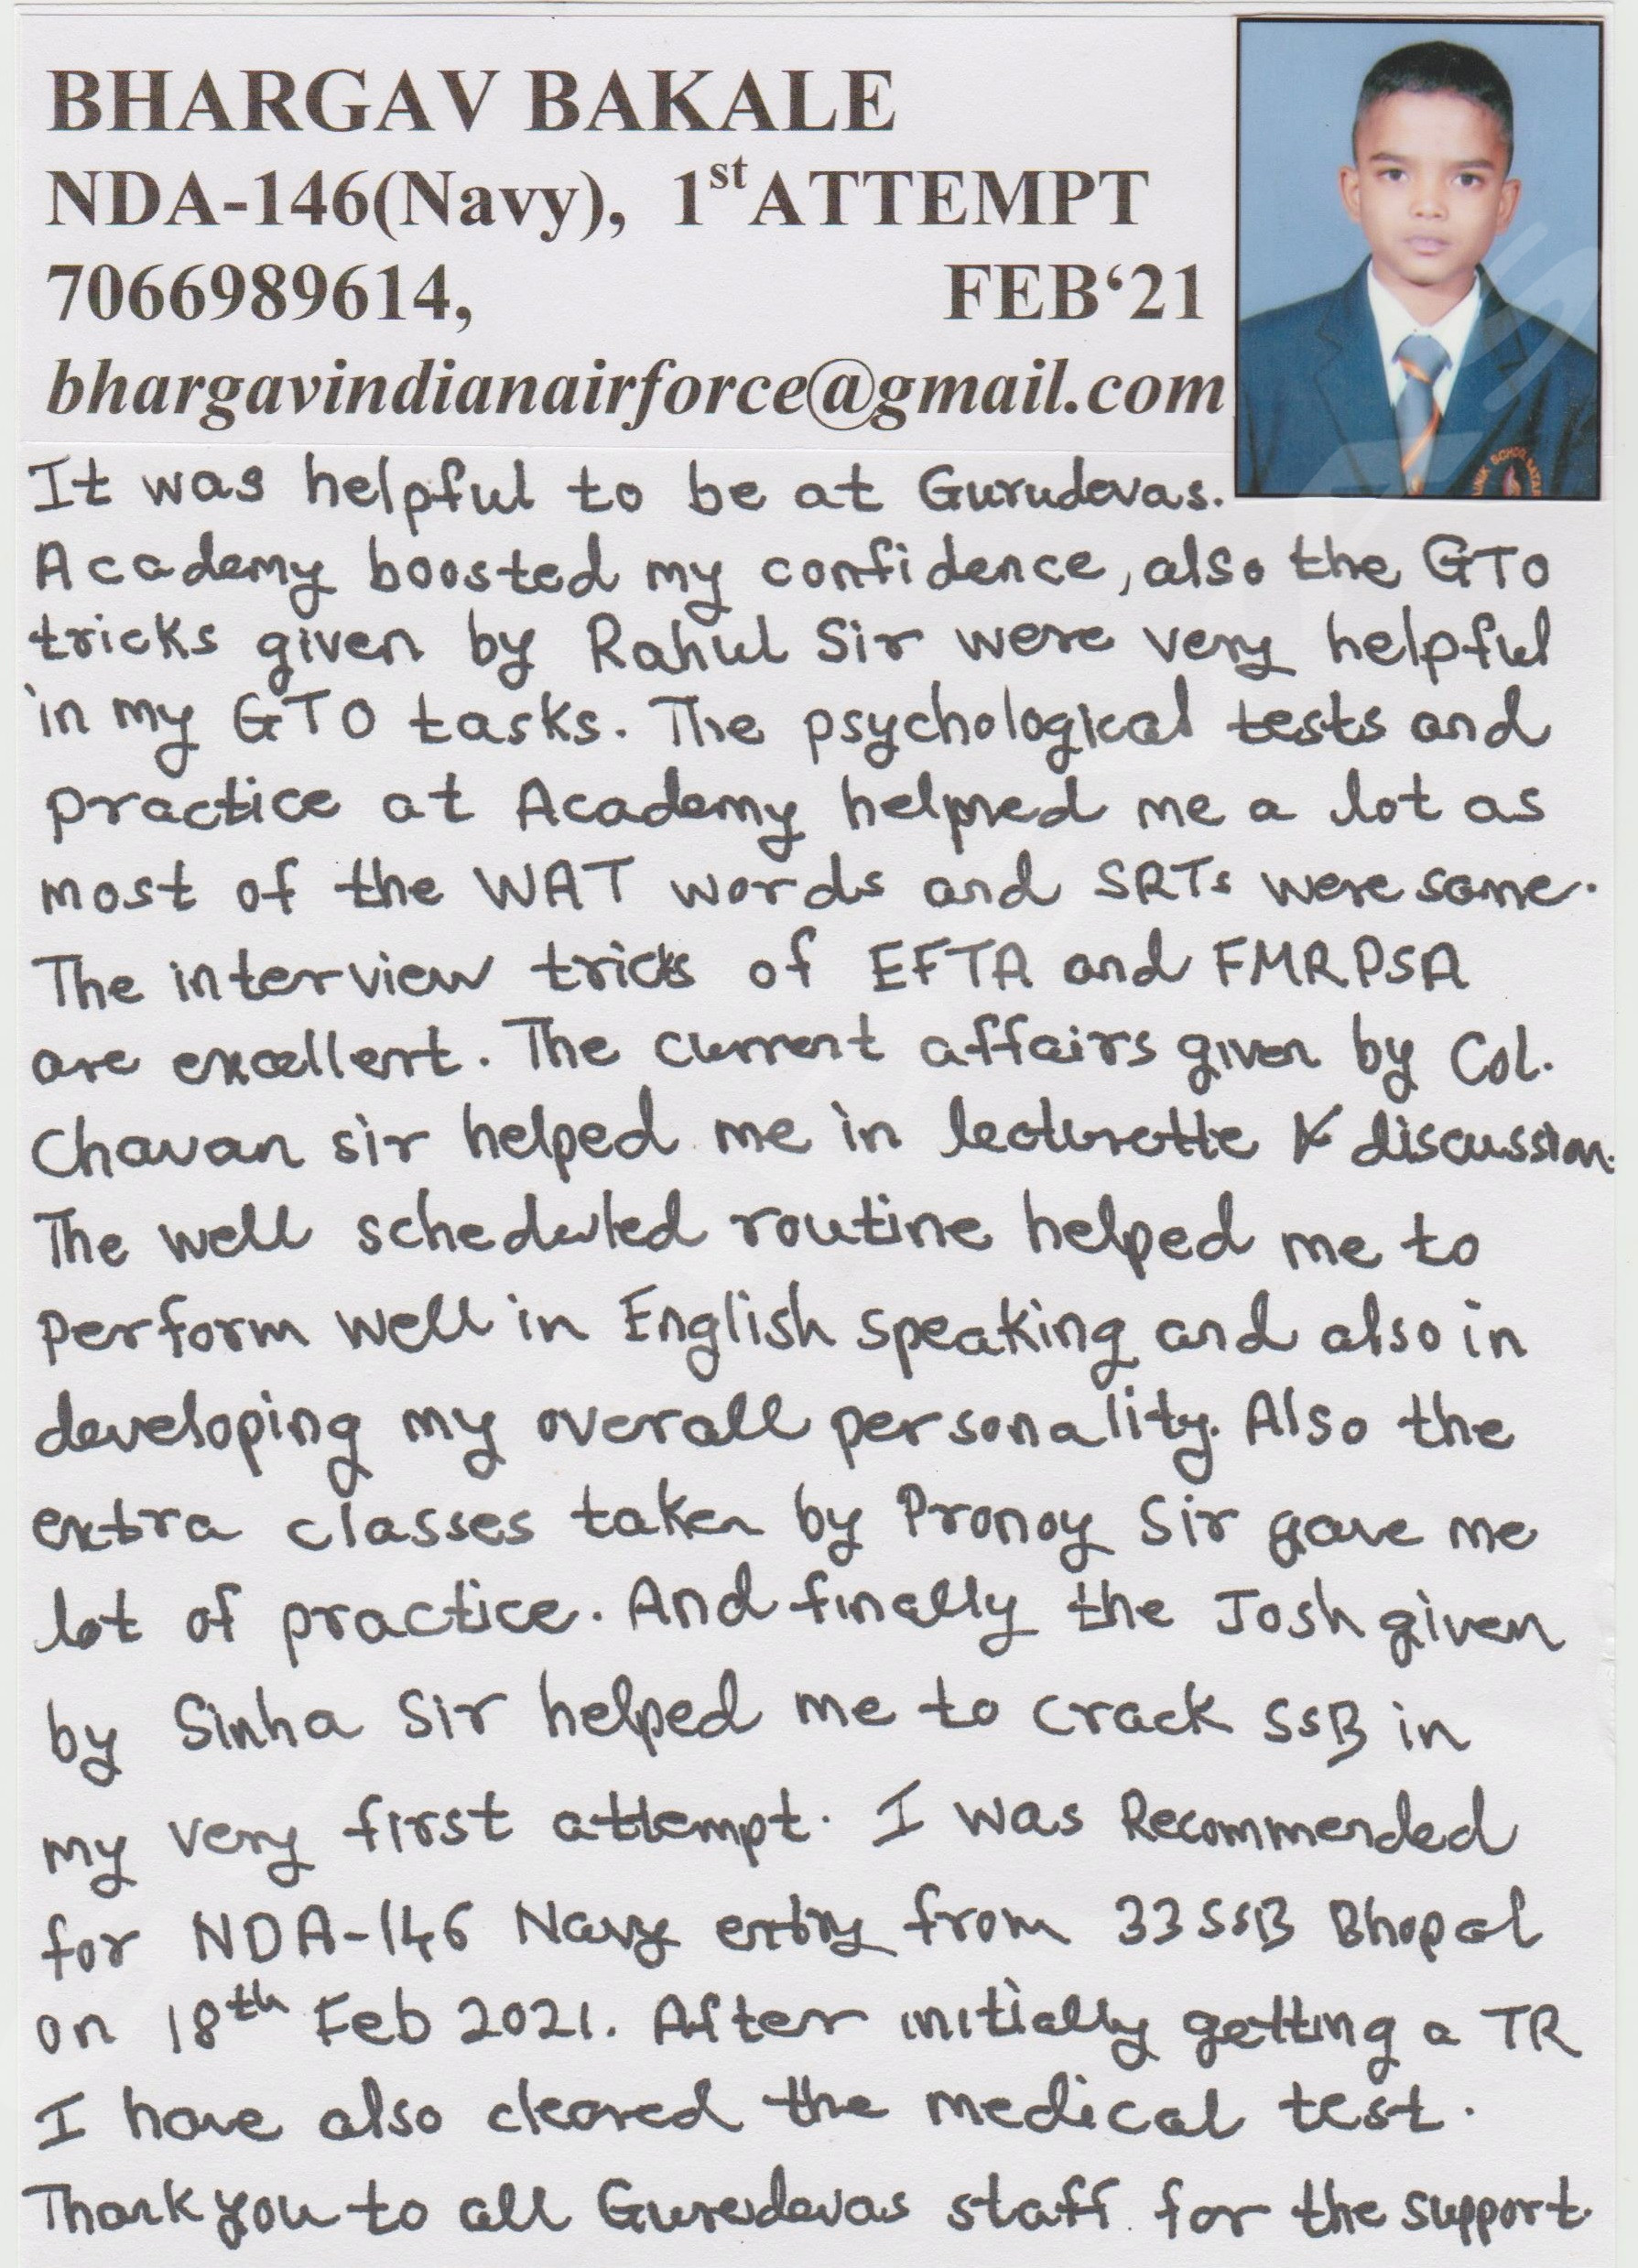 BHARGAV BAKALE
NDA-146(Navy), 1st ATTEMPT
7066989614, FEB‘21
bhargavindianairforce@gmail.com
It was helpful to be at Gurudevas.
Academy boosted my confidence, also the GTO
tricks given by Rahul Sir were very helpful
in my GTO tasks. The psychological tests and
practice at Academy helped me a lot as
most of the WAT words and SRTs were same.
The interview tricks of EFTA and FMRPSA
are excellent. The current affairs given by Col.
Chavan sir helped me in lecturette & discussion.
The well scheduled routine helped me to
perform well in English speaking and also in
developing my overall personality. Also the
extra classes taken by Pronoy Sir gave me
lot of practice. And finally the Josh given
by Sinha Sir helped me to crack SSB in
my very first attempt. I was Recommended
for NDA-146 Navy entry from 33 SSB Bhopal
on 18th Feb 2021. After initially getting a TR
I have also cleared the medical test.
Thank you to all Gurudevas staff for the support.